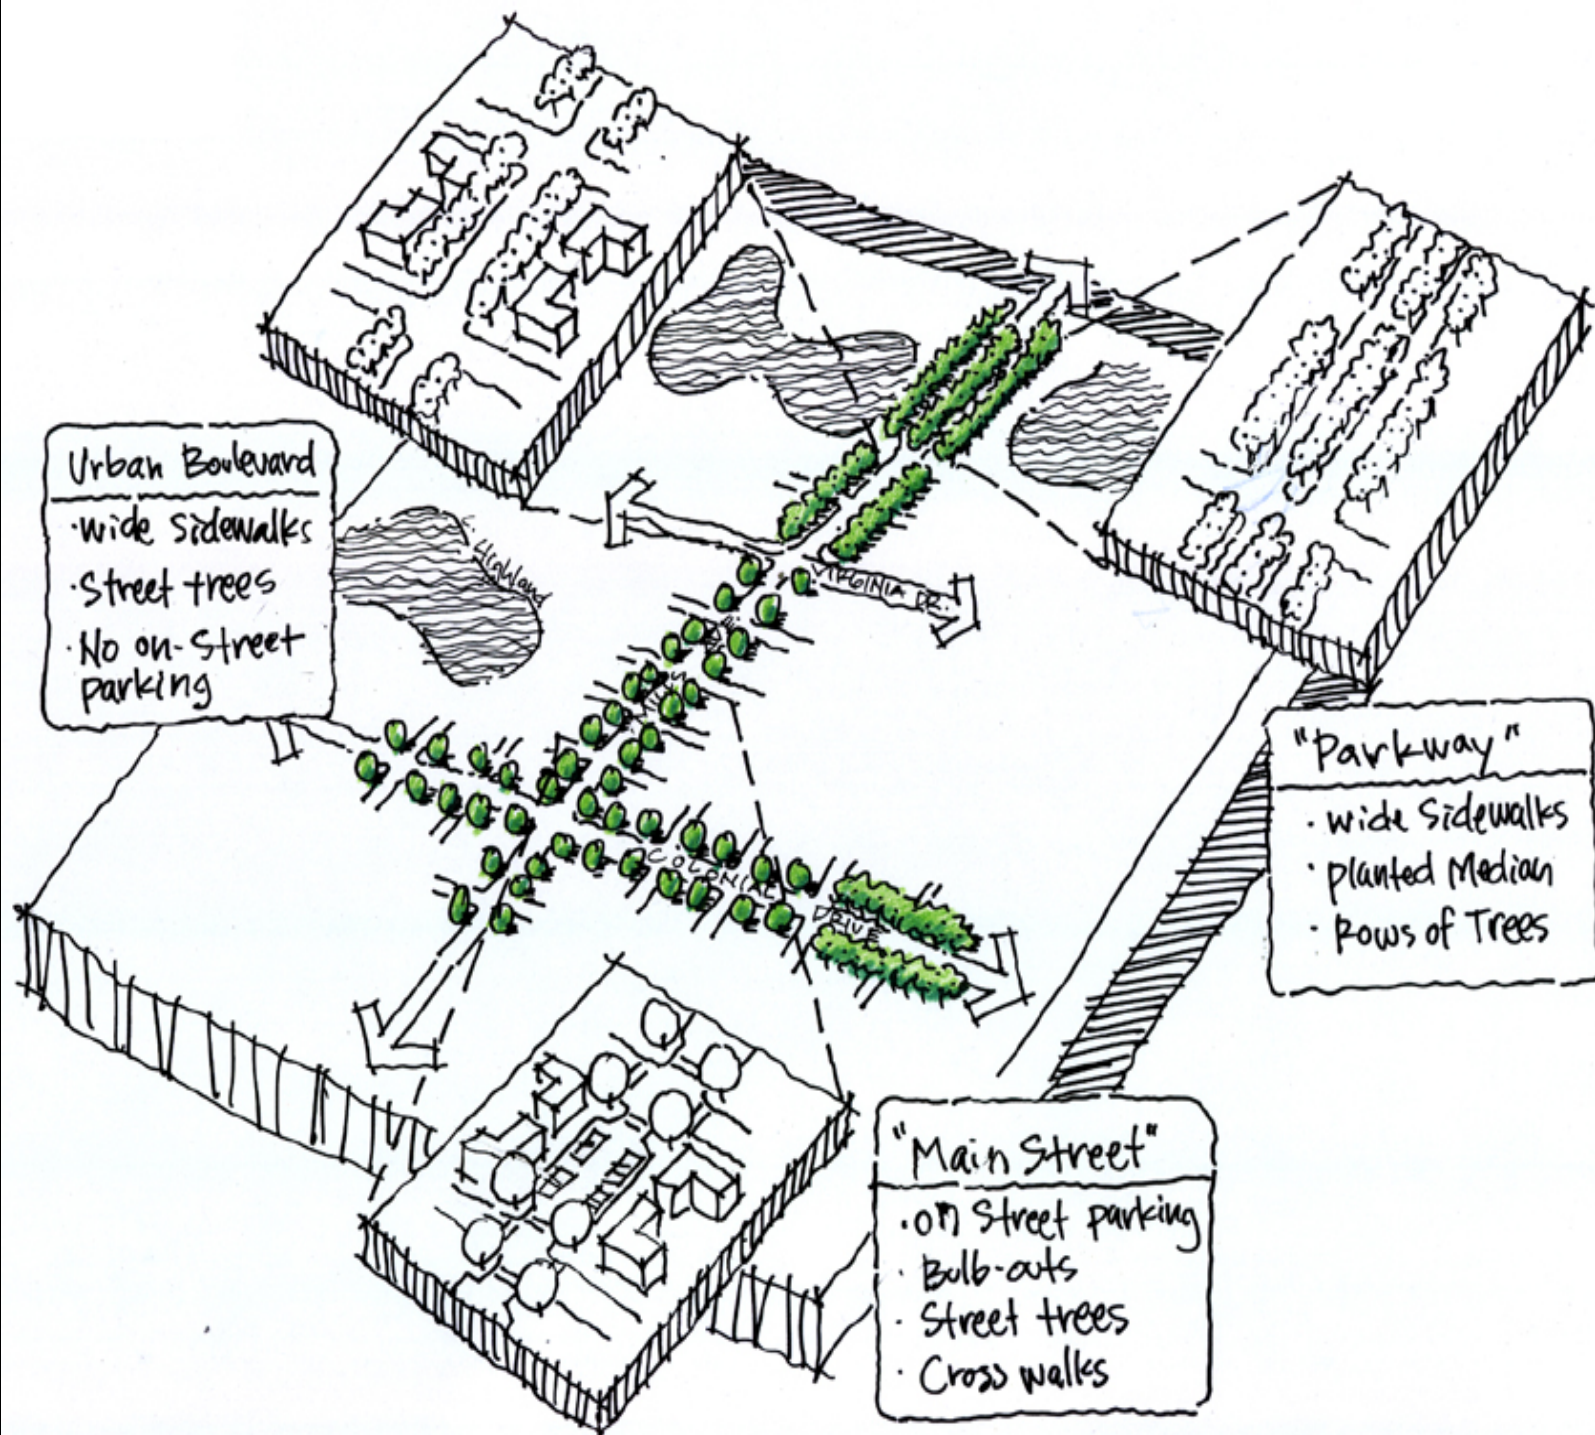 Urban Boulevard
·wide Sidewalks
·Street trees
·No on-Street
parking
Highland
VIRGINIA DR.
MILLS
COLONIAL
DRIVE
"Parkway"
· wide Sidewalks
· planted Median
· Rows of Trees
"Main Street"
·on Street parking
· Bulb-outs
· Street trees
· Cross walks